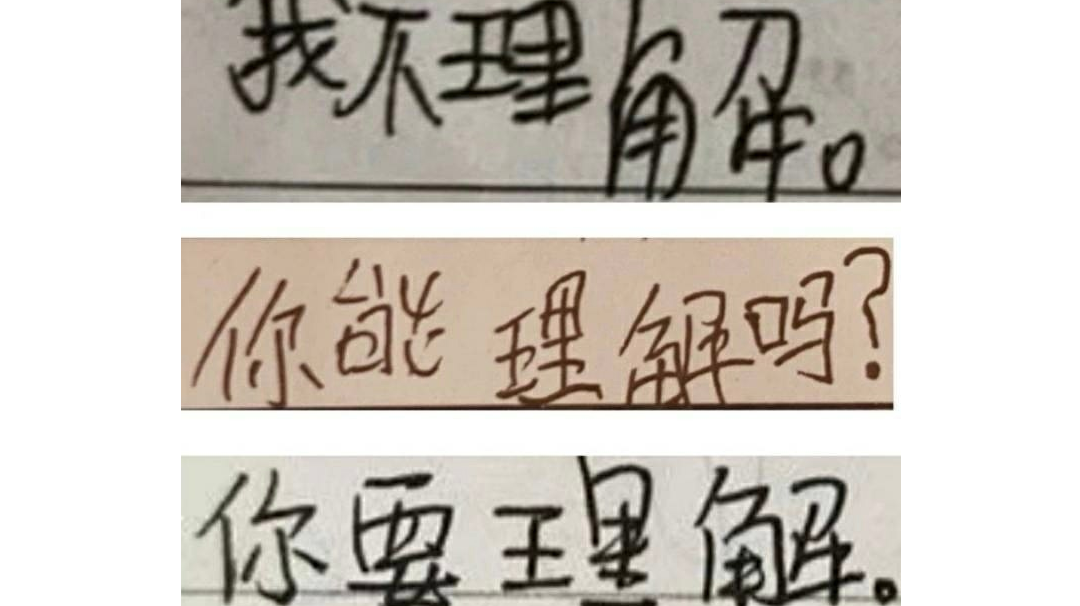 我不理解。
你能理解吗?
你要理解。